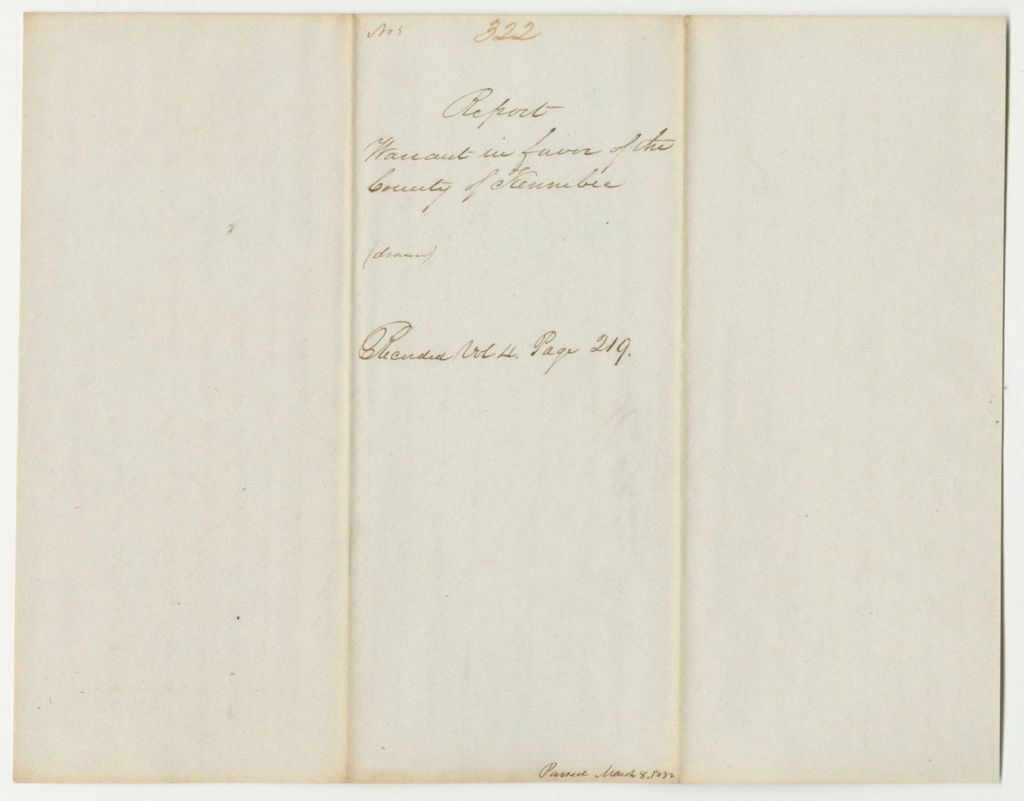 No 5 322
Report
Warrant in favor of the
County of Kennebec
(drawn)
Recorded Vol 4. Page 219.
Passed March 8, 1832